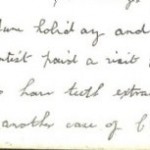 holiday and
ntist paid a visit
have teeth extra
another case of